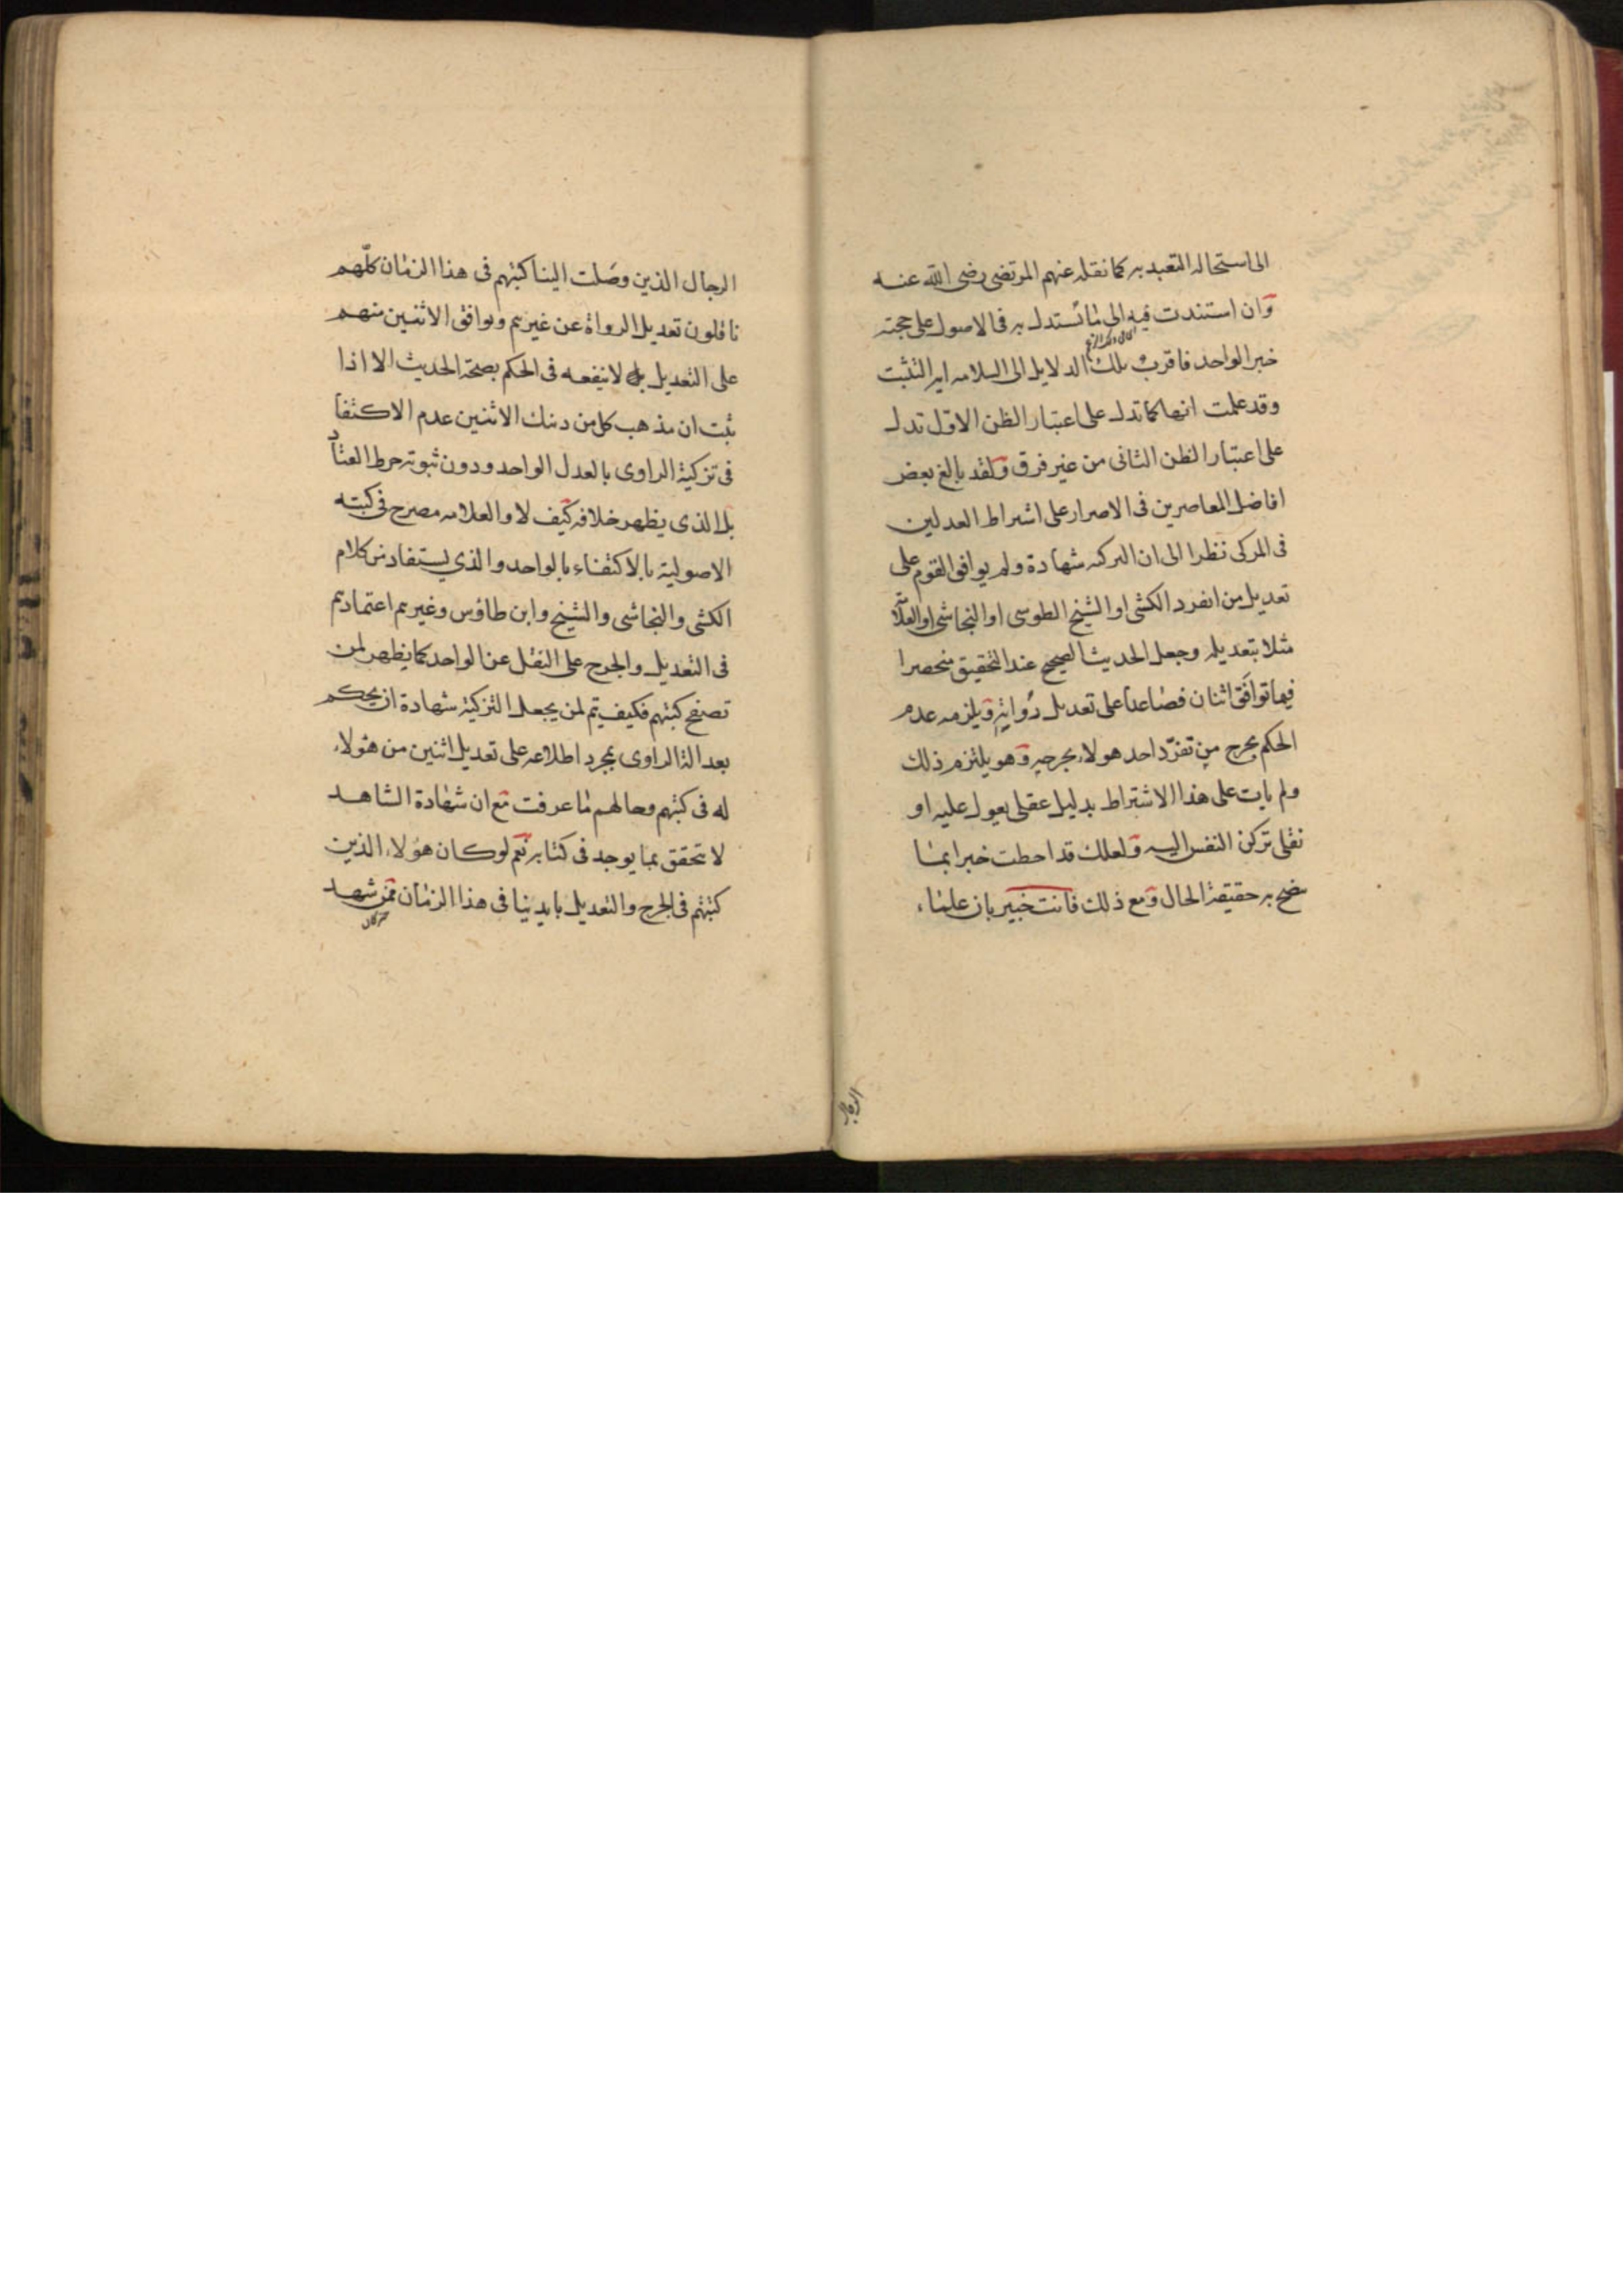 الى استحاله التعبد به كما نقله عنهم المرتضى رضى الله عنه
وان استندت فيه الى ما نستدل به فى الاصول على حجته
خبر الواحد فاقرب تلك الدلايل الى السلامه ايه التثبت
وقد علمت انها كما تدل على اعتبار الظن الاول تدل
على اعتبار الظن الثانى من غير فرق ولقد بالغ بعض
افاضل المعاصرين فى الاصرار على اشراط العدلين
فى المزكى نظرا الى ان التزكيه شهادة ولم يوافق القوم على
تعديل من انفرد الكشى او الشيخ الطوسى او النجاشى او العلا
مثلا بتعديله وجعل الحديث الصحيح عند التحقيق منحصرا
فيما توافق اثنان فصاعدا على تعديل رواته ويلزمه عدم
الحكم بجرح من تفرد احد هولاء بجرحه وهو يلتزم ذلك
ولم يات على هذا الاشتراط بدليل عقلى يعول عليه او
نقلى تركن النفس اليه ولعلك قد احطت خبرا بما
يتضح به حقيقة الحال ومع ذلك فانت خبير بان علماء
الرجال
الرجال الذين وصلت الينا كتبهم فى هذا الزمان كلهم
ناقلون تعديل الرواة عن غيرهم وتوافق الاثنين منهم
على التعديل لا ينفعه فى الحكم بصحة الحديث الا اذا
ثبت ان مذهب كل من ذينك الاثنين عدم الاكتفا
فى تزكية الراوى بالعدل الواحد ودون ثبوته خرط القتاد
بل الذى يظهر خلافه كيف لا والعلامه مصرح فى كتبه
الاصولية بالاكتفاء بالواحد والذي يستفاد من كلام
الكشى والنجاشى والشيخ وابن طاؤس وغيرهم اعتمادهم
فى التعديل والجرح على النقل عن الواحد كما يظهر لمن
تصفح كتبهم فكيف يتم لمن يجعل التزكية شهادة ان يحكم
بعدالة الراوى بمجرد اطلاعه على تعديل اثنين من هؤلاء
له فى كتبهم وحالهم ما عرفت مع ان شهادة الشاهد
لا تحقق بما يوجد فى كتابه نعم لو كان هؤلاء الذين
كتبهم فى الجرح والتعديل بايدينا فى هذا الزمان ممن شهد